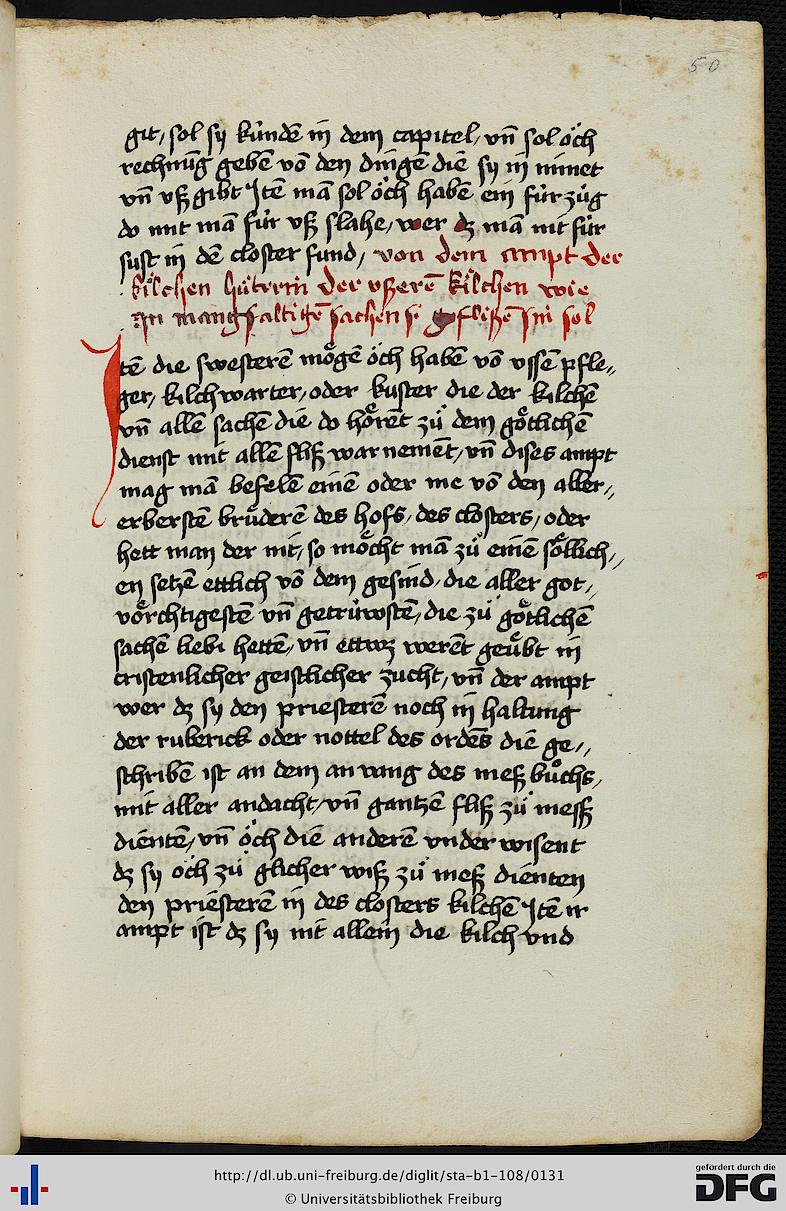 50
git, sol sy kúndē in dem capitel, vn̄ sol öch
rechnūg gebē vō den dingē die sy in nimet
vn̄ vsz gibt Itē mā sol öch habē ein fúrzúg
do mit mā fúr vsz slahe, wer dz mā nit fúr
sust in dē closter fund, von dem ampt der
kilchen hütrin der vszerē kilchen wie
an mangfaltigē sachen
sol
Itē die swesterē mögē öch habē vō vssen pfle„
ger, kilchwarter, oder kuster die der kilchē
vn̄ allē sachē die do hörēt zů dem götlichē
dienst mit allē flisz war nemēt, vn̄ dises ampt
mag mā befelē einē oder me vō den aller„
erberstē brüderē des hofs, des closters, oder
hett man der nit, so möcht mā zů einē söllich„
en setzē ettlich vō dem gesind, die aller got„
vörchtigestē vn̄ getrúwstē, die zů götlichē
sachē liebi hettē, vn̄ ettwz werēt geübt in
cristenlicher geistlicher zucht, vn̄ der ampt
wer dz sy den priesterē noch in haltung
der ruberick oder nottel des ordēs die ge„
schribē ist an dem anvang des mesz bůchs,
mit aller andacht, vn̄ gantzē flisz zů messz
dientē, vn̄ öch die anderē vnder wisent
dz sy öch zů glicher wisz zů mesz dienten
den priesterē in des closters kilchē Itē ir
ampt ist dz sy nit allein die kilch vnd
http://dl.ub.uni-freiburg.de/diglit/sta-b1-108/0131
© Universitätsbibliothek Freiburg
gefördert durch die
DFG